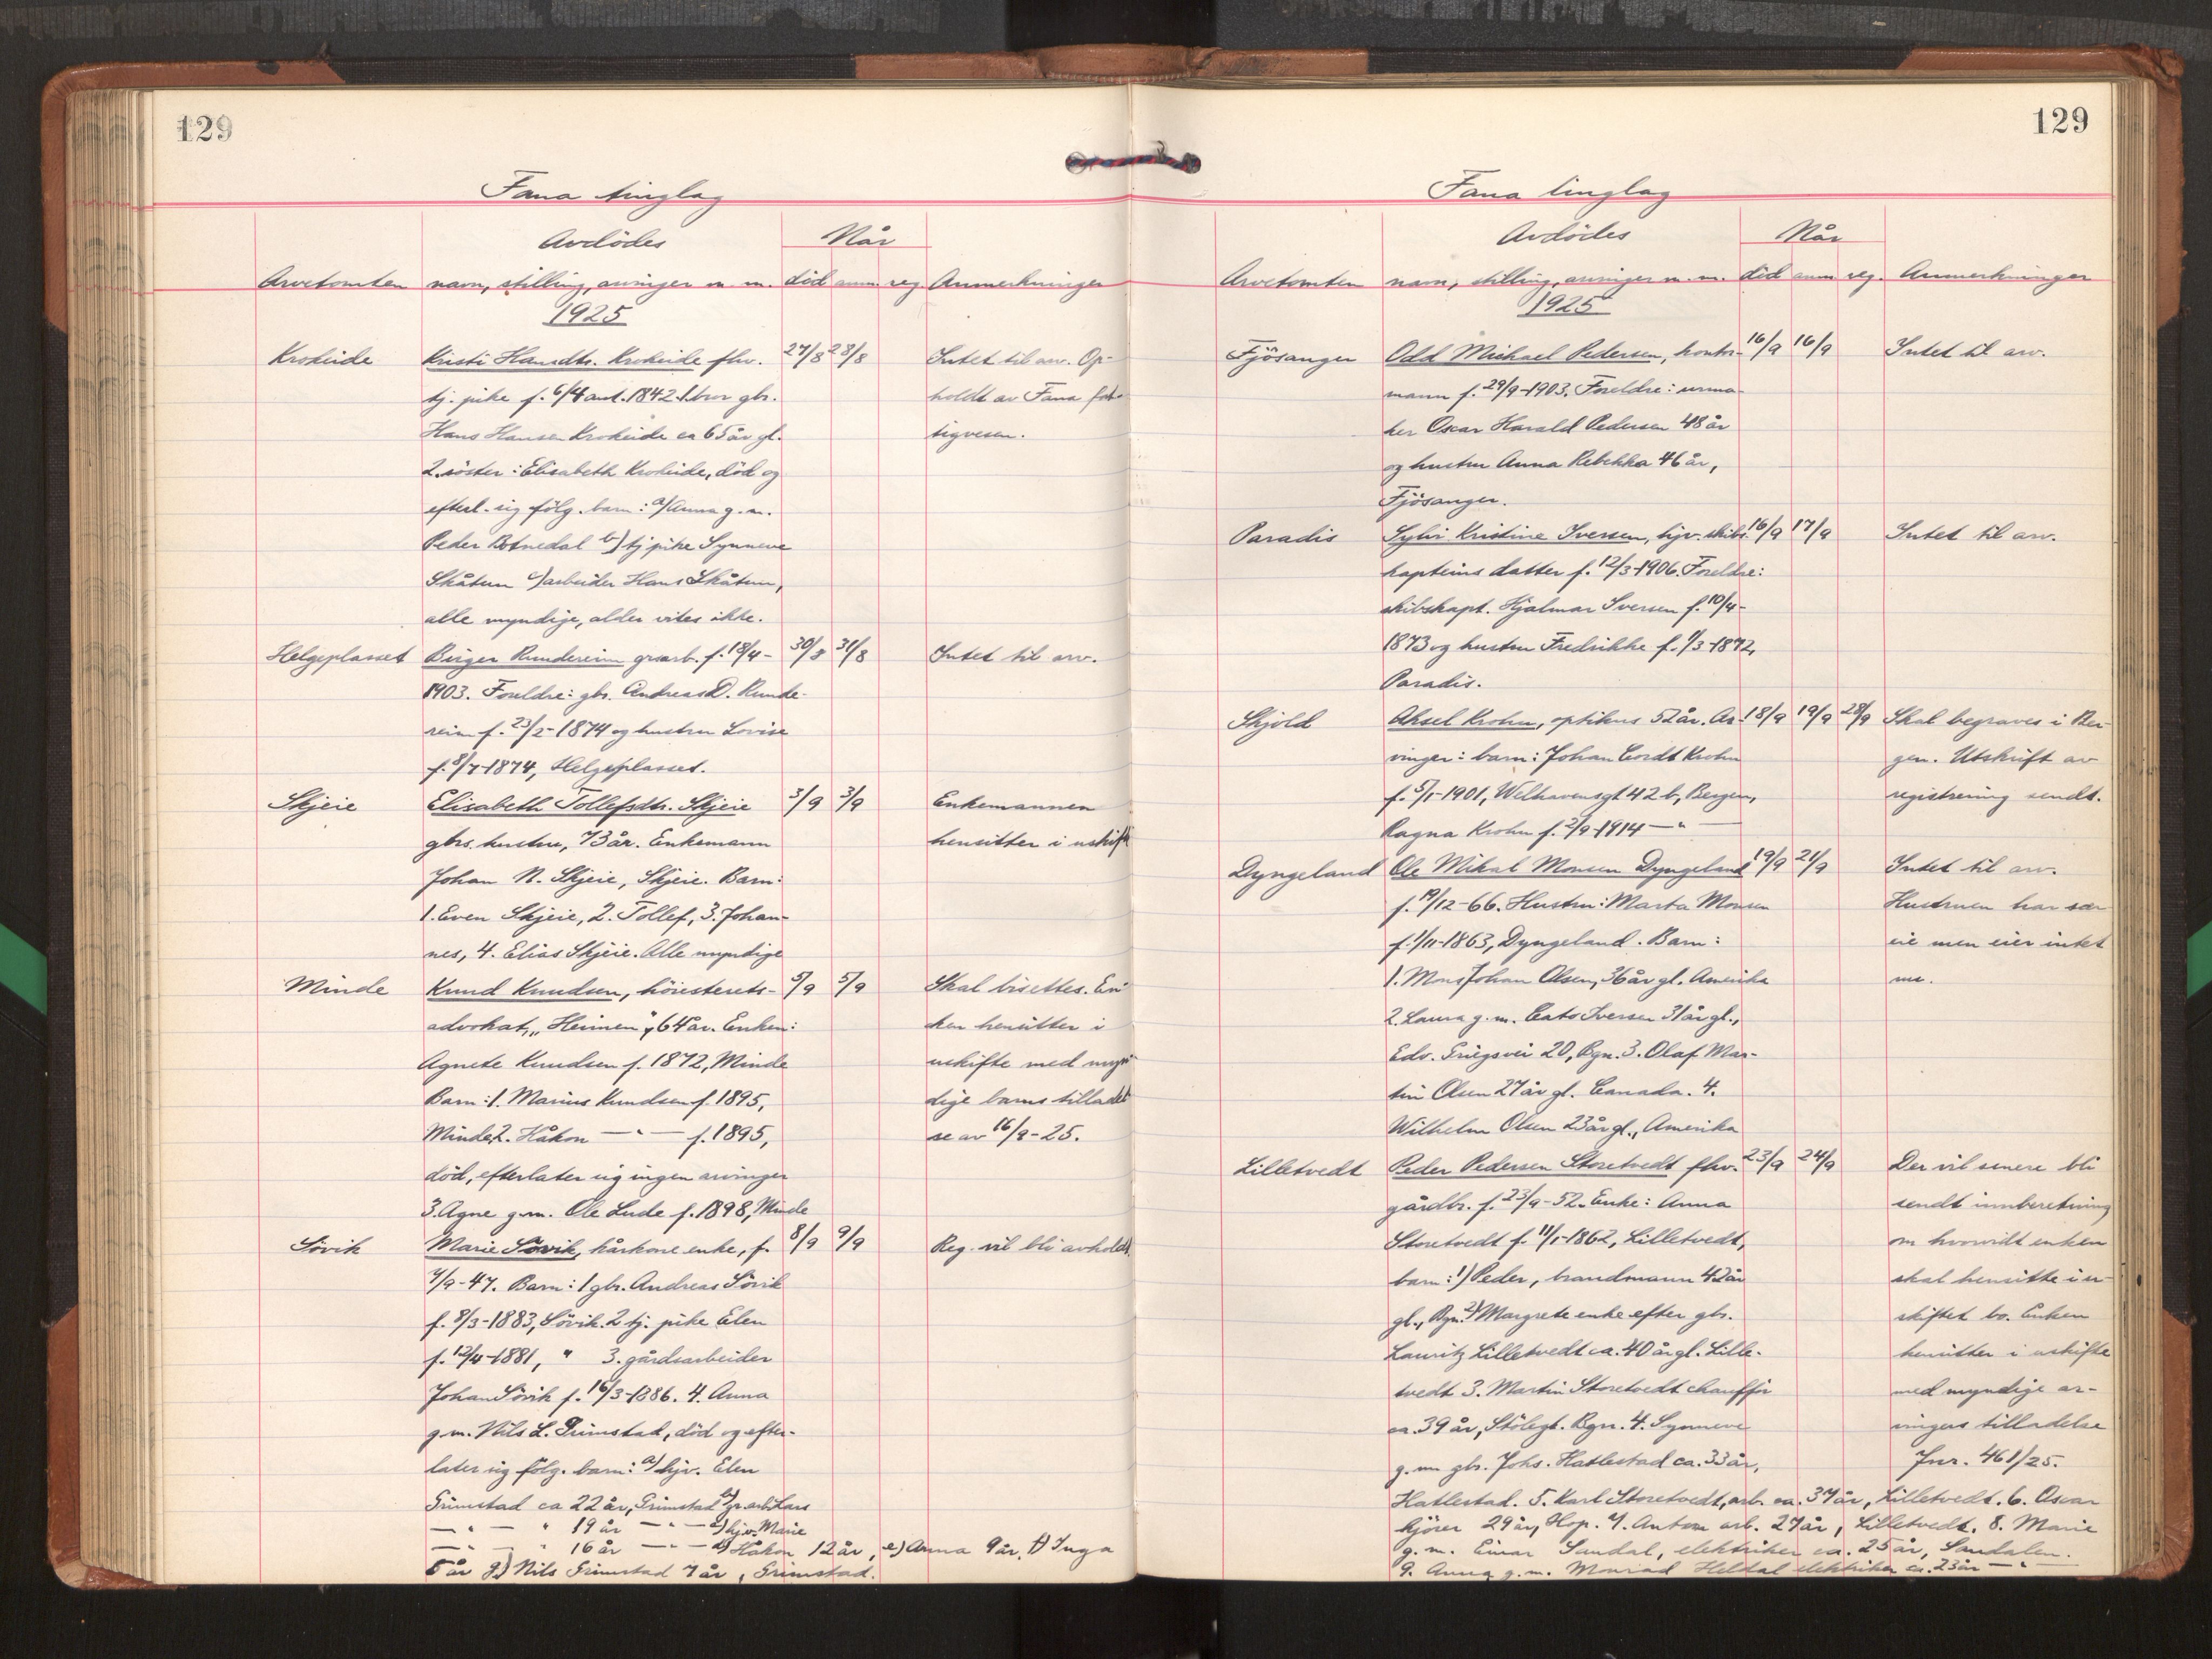 129
Fana tinglag
Avdödes
Når
Arvetomten navn, stilling, arvinger m. m. död anm reg Anmerkninger
1925
Krokeide Kristi Hansdtr. Krokeide fhv. 27/8 28/8 Intet til arv. Op-
tj. pike f. 6/4 1842. 1. bror gbr. holdt av Fana fat-
Hans Hansen Krokeide ca 65 år gl. tigvesen.
2. söster: Elisabeth Krokeide, död og
efterl. sig fölg. barn: a) Anna g. m.
Peder Botnedal b) tj pike Synneve
Skåtun c) arbeider Hans Skåtun,
alle myndige, alder vites ikke.
Helgeplasset Birger Rundereim f. 18/4- 30/8 31/8 Intet til arv.
1903. Foreldre: gbr. Andreas D. Runde-
reim f. 23/2-1874 og hustru Lovise
f. 8/7-1874, Helgeplasset.
Skjeie Elisabeth Tollefsdtr. Skjeie 3/9 3/9 Enkemannen
gbrs. hustru, 73 år. Enkemann hensitter i uskifte
Johan N. Skjeie, Skjeie. Barn:
1. Even Skjeie, 2. Tollef, 3. Johan-
nes, 4. Elias Skjeie. Alle myndige
Minde Knud Knudsen, höiesterets- 5/9 5/9 Skal bisettes. En-
advokat, "Heimen", 64 år. Enken: ken hensitter i
Agnete Knudsen f. 1872, Minde uskifte med myn-
Barn: 1. Marius Knudsen f. 1895, dige barns tilladel-
Minde, 2. Håkon — " — f. 1895, se av 16/9-25.
död, efterlater sig ingen arvinger
3. Agne g.m. Ole Lude f. 1898, Minde
Sövik Marie Sövik, kårkone enke, f. 8/9 9/9 Reg. vil bli avholdt.
4/9-47. Barn: 1 gbr. Andreas Sövik
f. 8/3-1883, Sövik. 2 tj. pike Elen
f. 12/4-1881, " 3. gårdsarbeider
Johan Sövik f. 16/3-1886. 4. Anna
g.m. Nils L. Grimstad, död og efter-
later sig fölg. barn: a) hjv. Elen
Grimstad ca 22 år, Grimstad b) gr.arb. Lars
— " — " 19 år — " — c) hjv. Marie
— " — " 16 år — " — d) Håkon 12 år, e) Anna 9 år, f) Inga
5 år g) Nils Grimstad 7 år, Grimstad.
129
Fana tinglag
Avdödes
Når
Arvetomten navn, stilling, arvinger m. m. död anm reg. Anmerkninger
1925
Fjösanger Odd Michael Pedersen, kontor- 16/9 16/9 Intet til arv.
mann f. 29/9-1903. Foreldre: urma-
ker Oscar Harald Pedersen 48 år
og hustru Anna Rebekka 46 år,
Fjösanger.
Paradis Sylvi Kristine Iversen, hjv. skibs- 16/9 17/9 Intet til arv.
kapteins datter f. 12/3-1906. Foreldre:
skibskapt. Hjalmar Iversen f. 10/4-
1873 og hustru Fredrikke f. 1/3-1872,
Paradis.
Skjold Aksel Krohn, optikus 52 år. Ar- 18/9 19/9 28/9 Skal begraves i Ber-
vinger: barn: Johan Cordt Krohn gen. Utskrift av
f. 5/1-1901, Welhavensgt 42 b, Bergen, registrering sendt.
Ragna Krohn f. 2/9-1914 — " —
Dyngeland Ole Mikal Monsen Dyngeland 19/9 21/9 Intet til arv.
f. 19/12-66. Hustru: Marta Monsen Hustruen har sær-
f. 1/11-1863, Dyngeland. Barn: eie men eier intet
1. Mons Johan Olsen, 36 år gl. Amerika nu.
2. Laura g. m. Cato Iversen 31 år gl.,
Edv. Griegsvei 20, Bgn. 3. Olaf Mar-
tin Olsen 27 år gl. Canada. 4.
Wilhelm Olsen 23 år gl., Amerika
Lilletvedt Peder Pedersen Storetvedt fhv. 23/9 24/9 Der vil senere bli
gårdbr. f. 23/9-52. Enke: Anna sendt innberetning
Storetvedt f. 11/1-1862, Lilletvedt, om hvorvidt enken
barn: 1) Peder, brandmann 42 år skal hensitte i u-
gl., Bgn. 2) Margrete enke efter gbr. skiftet bo. Enken
Lauritz Lilletvedt ca. 40 år gl. Lille- hensitter i uskifte
tvedt 3. Martin Storetvedt chaufför med myndige ar-
ca. 39 år, Stölegt. Bgn. 4. Synneve vingers tilladelse
g. m. gbr. Johs. Hatlestad ca. 33 år, Jnr. 461/25.
Hatlestad. 5. Karl Storetvedt, arb. ca. 37 år, Lilletvedt. 6. Oscar
kjörer 29 år, Hop. 7. Anton arb. 27 år, Lilletvedt. 8. Marie
g. m. Einar Sandal, elektriker ca. 25 år, Sandalen.
9. Anna g. m. Monrad Heldal elektriker ca. 23 år — " —